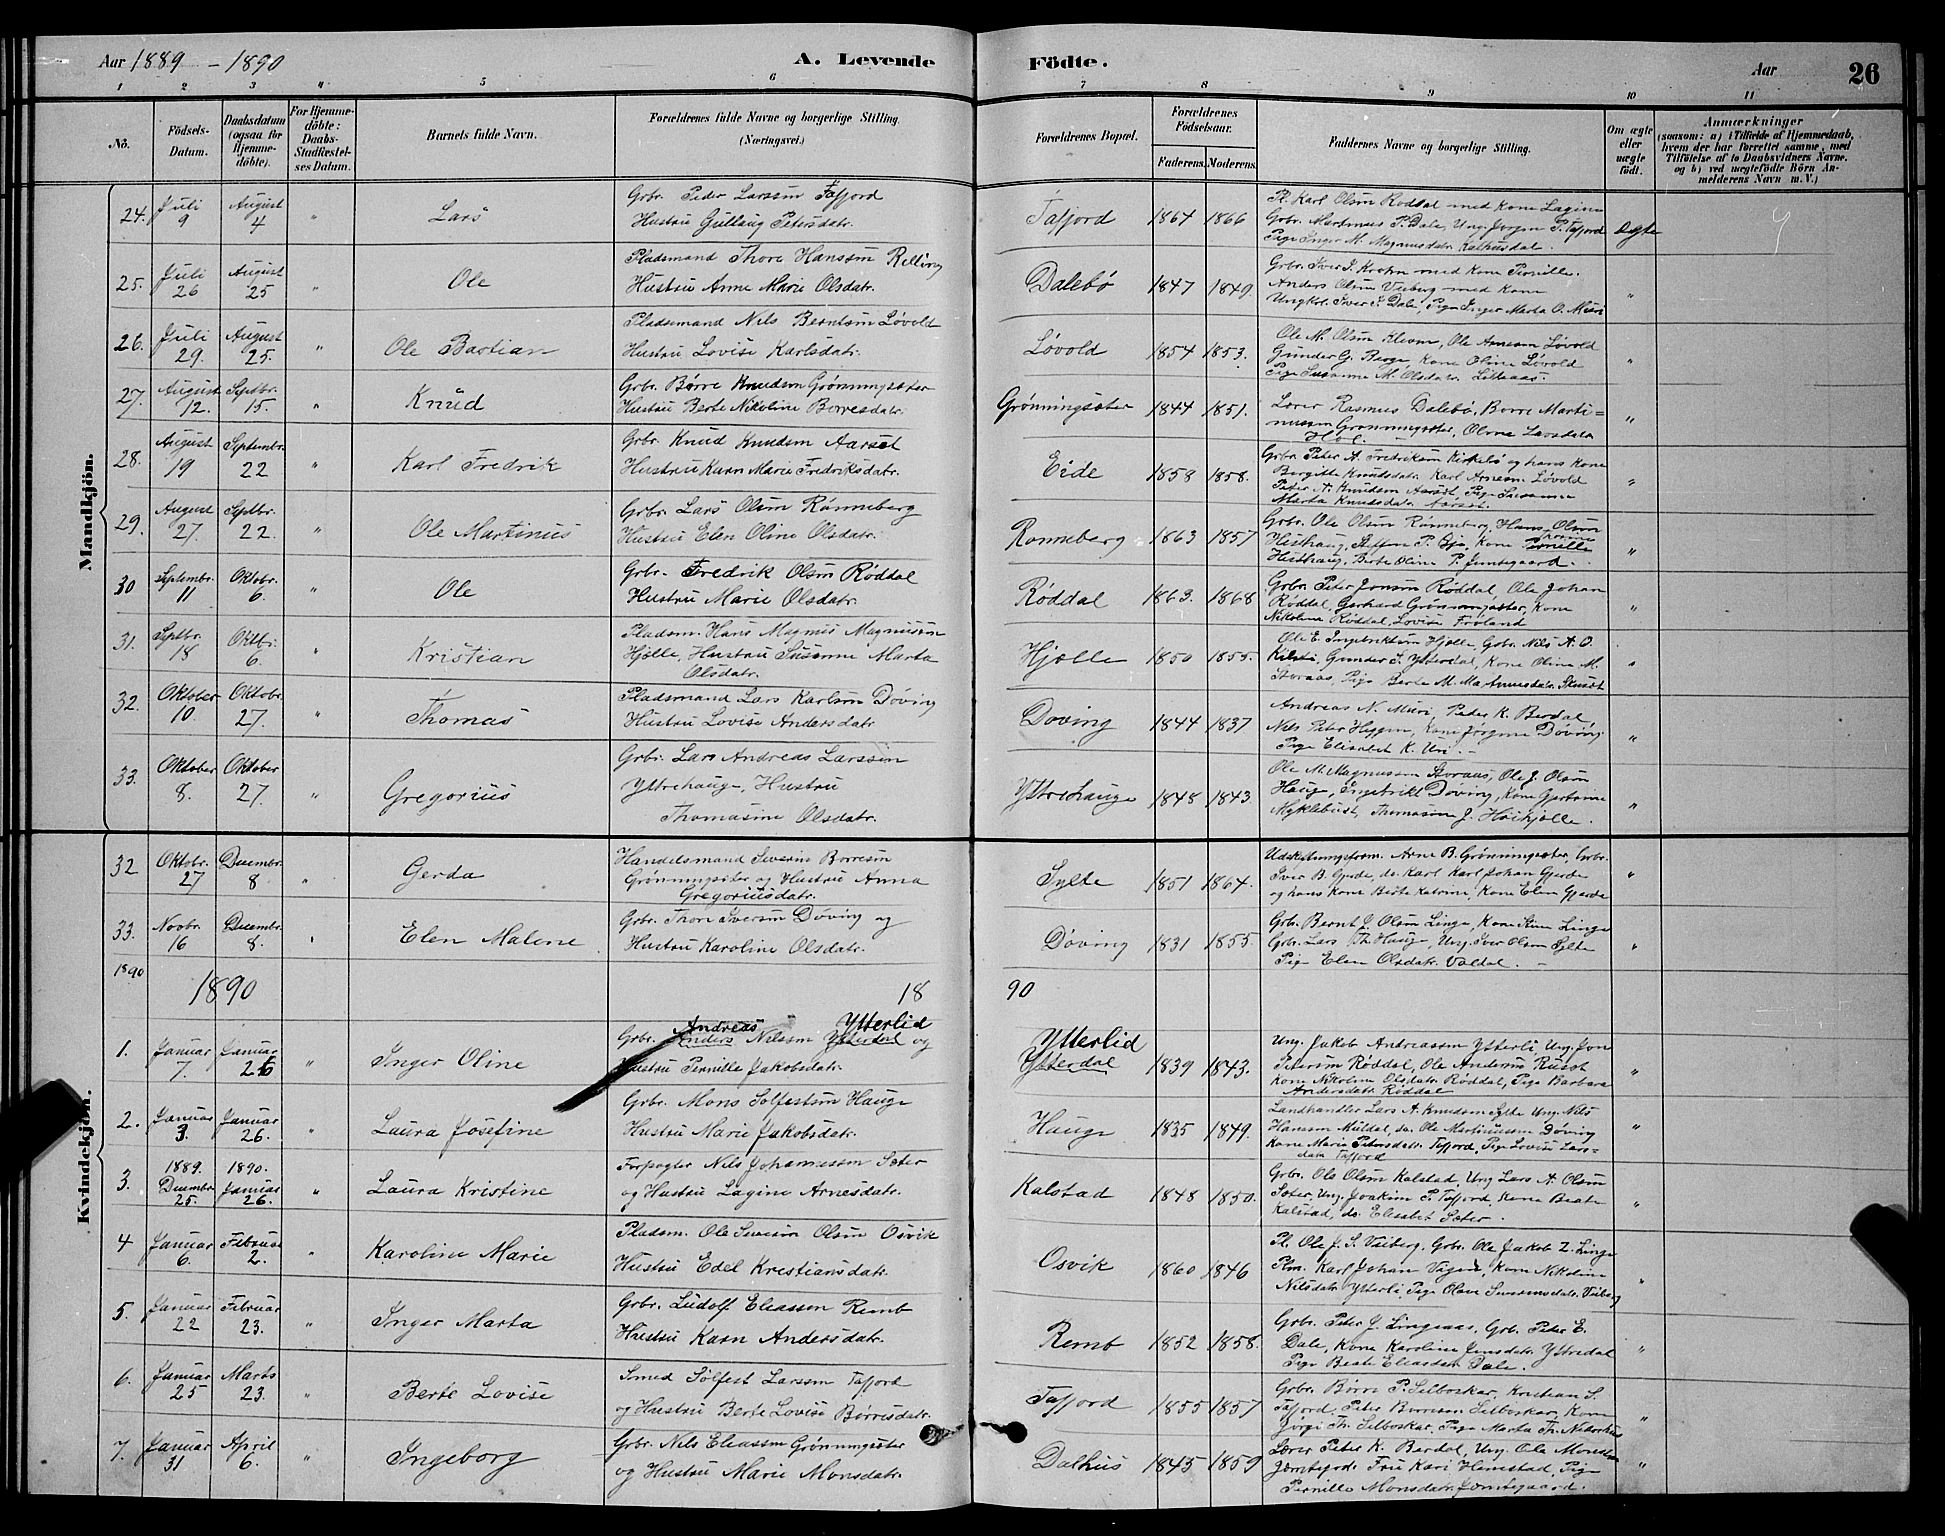 Aar 1889 - 1890
A. Levende Födte.
Aar
26
1 2 3 " 5 6 7 8 9 10 11
No.
Födsels-
Datum.
Daabsdatum
(ogsaa for
Hjemme-
döbte).
For Hjemme-
döbte:
Daabs-
Stadfæstel-
ses Datum.
Barnets fulde Navn.
Forældrenes fulde Navne og borgerlige Stilling
(Næringsvei.)
Forældrenes Bopæl.
Forældrenes
Födselsaar.
Faderens. Moderens.
Faddernes Navne og borgerlige Stilling.
Om ægte
eller
uægte
födt.
Anmærkninger
(saasom: a) i Tilfælde af Hjemmedaab,
hvem der har forrettet samme, med
Tilföielse af to Daabsvidners Navne.
og b) ved uægtefödte Börn An-
melderens Navn m. V.)
Mandkjön.
24. Juli 9 August 4 " Lars
Grbr. Peder Larssen Tafjord
Hustru Gullaug Petersdatr.
Tafjord 1864 1866
Pl. Karl Olsen Røddal med Kone Lagine
Grbr. Martinus P. Dale, Ung. Jørgen P. Tafjord
Pige Inger M. Magnusdatr.
Ægte
25. Juli 26 August 25 " Ole
Pladsmand Thore Hanssen Relling
Hustru Anne Marie Olsdatr.
Dalebø 1847 1849
Grbr. Iver J. Krohn med Kone Pernille.
Anders Olsen Veiberg med Kone
Ungkrl. Iver I. Dale, Pige Inger Marta O. Muri
"
26. Juli 29. August 25. " Ole Bastian
Pladsmand Nils Berntsen Løvold
Hustru Lovise Karlsdatr.
Løvold 1854 1853.
Ole M. Olsen Kleven, Ole Arnesen Løvold
Gunder G. Berge, Kone Oline Løvold
Pige Susanne M. Olsdatr. Lillaas.
"
27. August 12. Septbr. 15. " Knud
Grbr. Børre Knudsen Grønningsæter
Hustru Berte Nikoline Børresdatr.
Grønningsæter 1844 1851.
Lærer Rasmus Dalebø, Børre Marti=
nussen Grønningsæter, Oline Larsdatr.
Hol.
"
28. August 19 Septembr. 22 " Karl Fredrik
Grbr. Knud Knudsen Aarset
Hustru Karn Marie Fredriksdatr.
Eide 1858 1858.
Grbr. Peter A. Fredriksen Kirkebø og hans Kone
Bergitte Knudsdatr. Karl Arnesen Løvold
Peter N. Knudsen Aarset, Pige Susanne
Marta Knudsdatr. Aarset.
"
29. August 27. Septbr. 22. " Ole Martinus
Grbr. Lars Olsen Rønneberg
Hustru Elen Oline Olsdatr.
Rønneberg 1863 1857
Grbr. Ole Olsen Rønneberg, Hans Olsen
Hesthaug, Steffen P. Kone Pernille
Hesthaug, Berte Oline P. Jemtegaard.
"
30 Septembr. 11 Oktobr. 6. " Ole
Grbr. Fredrik Olsen Røddal
Hustru Marie Olsdatr.
Røddal 1863. 1868
Grbr. Peter Jonsen Røddal, Ole Johan
Røddal, Gerhard Grønningsæter, Kone
Nikoline Røddal, Lovise Frøland
"
31. Septbr. 18 Oktbr. 6. " Kristian
Pladsm. Hans Magnus Magnussen
Hjelle, Hustru Susanne Marta
Olsdatr.
Hjelle 1850 1855.
Ole E. Ingebriktsen Hjelle, Grbr. Nils A. O.
Kilsti, Gunder I. Ytterdal, Kone Oline M.
Storaas, Pige Berte M. Martinusdatr.
"
32. Oktober 10 Oktobr. 27. " Thomas
Pladsmand Lars Karlsen Døving
Hustru Lovise Andersdatr.
Døving 1844 1837
Andreas N. Muri, Peder K. Berdal,
Nils Peter Heggen, Kone Jørgine Døving
Pige Elisabet K. Uri.
"
33. Oktober 8. Oktober 27. " Gregorius
Grbr. Lars Andreas Larssen
Yttrehauge, Hustru
Thomasine Olsdatr.
Yttrehauge 1848 1843.
Ole M. Magnussen Storaas, Ole J. Olsen
Hauge, Ingebrikt Døving, Kone
Myklebust, Thomasine J. Høihjelle.
"
Kvindekjön.
32 Oktobr. 27 Decembr. 8 " Gerda
Handelsmand Severin Børresen
Grønningsæter og Hustru Anna
Gregoriusdatr.
Sylte 1851 1864.
Udskiftningsform. Arne B. Grønningsæter, Grbr.
Iver B. Gjerde, do. Karl Karl Johan Gjerde
og hans Kone Berte Katrine, Kone Elen Gjerde
"
33. Novbr. 16 Decembr. 8. " Elen Malene
Grbr. Thore Iversen Døving og
Hustru Karoline Olsdatr.
Døving 1831 1855.
Grbr. Bernt J. Olsen Linge, Kone Linge
Grbr. Lars Th. Hauge, Ung. Iver Olsen Sylte
Pige Elen Olsdatr. Valdal.
"
1890
1890 18 90
1. Januar 7. Januar 26 " Inger Oline
Andreas Ytterlid
Grbr. Anders Nilssen Ytterdal og
Hustru Pernille Jakobsdatr.
Ytterlid
Ytterdal 1839 1843.
Ung. Jakob Andreassen Ytterli, Ung. Jon
Petersen Røddal, Ole Andersen
Kone Nikoline Olsdatr. Røddal, Pige Barbara
Andersdatr. Røddal
"
2. Januar 3. Januar 26. " Laura Josefine
Grbr. Mons Solfestsen Hauge
Hustru Marie Jakobsdatr.
Hauge 1835 1849.
Landhandler Lars A. Knudsen Sylte Ung. Nils
Hanssen Muldal, do. Ole Martinussen Døving
Kone Marie Petersdatr. Tafjord, Pige Lovise Lars-
datr. Tafjord
"
3. 1889. Decembr. 25. 1890. Januar 26. " Laura Kristine
Forpagter Nils Johannessen Sæter
og Hustru Lagine Arnesdatr.
Kalstad 1848 1850.
Grbr. Ole Olsen Kalstad, Ung. Lars A. Olsen
Sæter, Ung. Joakim P. Tafjord, Kone Beate
Kalstad, do. Elisabet Sæter.
"
4 Januar 6. Februar 2. " Karoline Marie
Pladsm. Ole Severin Olsen Osvik
Hustru Edel Kristiansdatr.
Osvik 1860 1846
Pl. Ole J. S. Veiberg, Grbr. Ole Jakob Z. Linge
Plm. Karl Johan Vigen, Kone Nikoline
Nilsdatr. Ytterli, Pige Olave Veiberg
"
5. Januar 22 Februar 23. " Inger Marta
Grbr. Ludolf Eliassen Remb
Hustru Karn Andersdatr.
Remb 1852 1858.
Grbr. Peter J. Lingeaas, Grb. Peter E.
Dale, Kone Karoline Jensdatr. Ytredal
Pige Beate Eliasdatr. Dale.
"
6. Januar 25 Marts 23. " Berte Lovise
Smed Sølfest Larssen Tafjord
og Hustru Berte Lovise Børresdatr.
Tafjord 1855 1857
Grbr. Børre P. Selboskar, Kristian S.
Tafjord, Peter Børresen Selboskar, Kone
Jørgi Th. Selboskar, Pige Marta Th.
"
7. Januar 31 April 6. " Ingeborg
Grbr. Nils Eliassen Grønningsæter
og Hustru Marie Monsdatr.
Dalhus 1845 1859
Lærer Peter K. Berdal, Ung. Ole Monsen
Fru Kari Hemstad, Pige
Pernille Monsdatr. Jemtegaard.
"